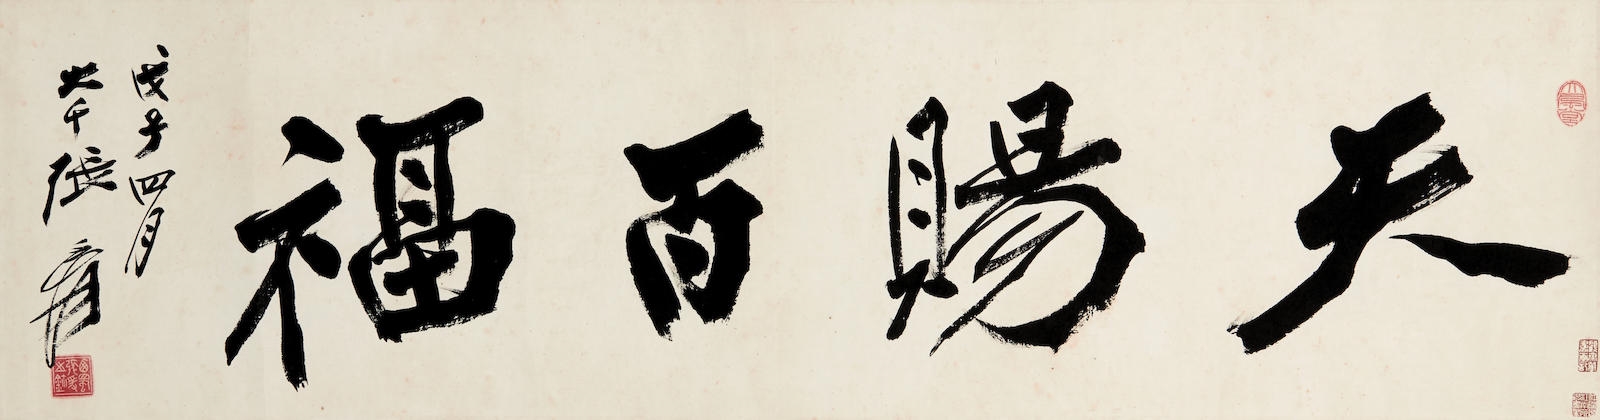 天賜百福
戊子四月
大千張爰
大風堂